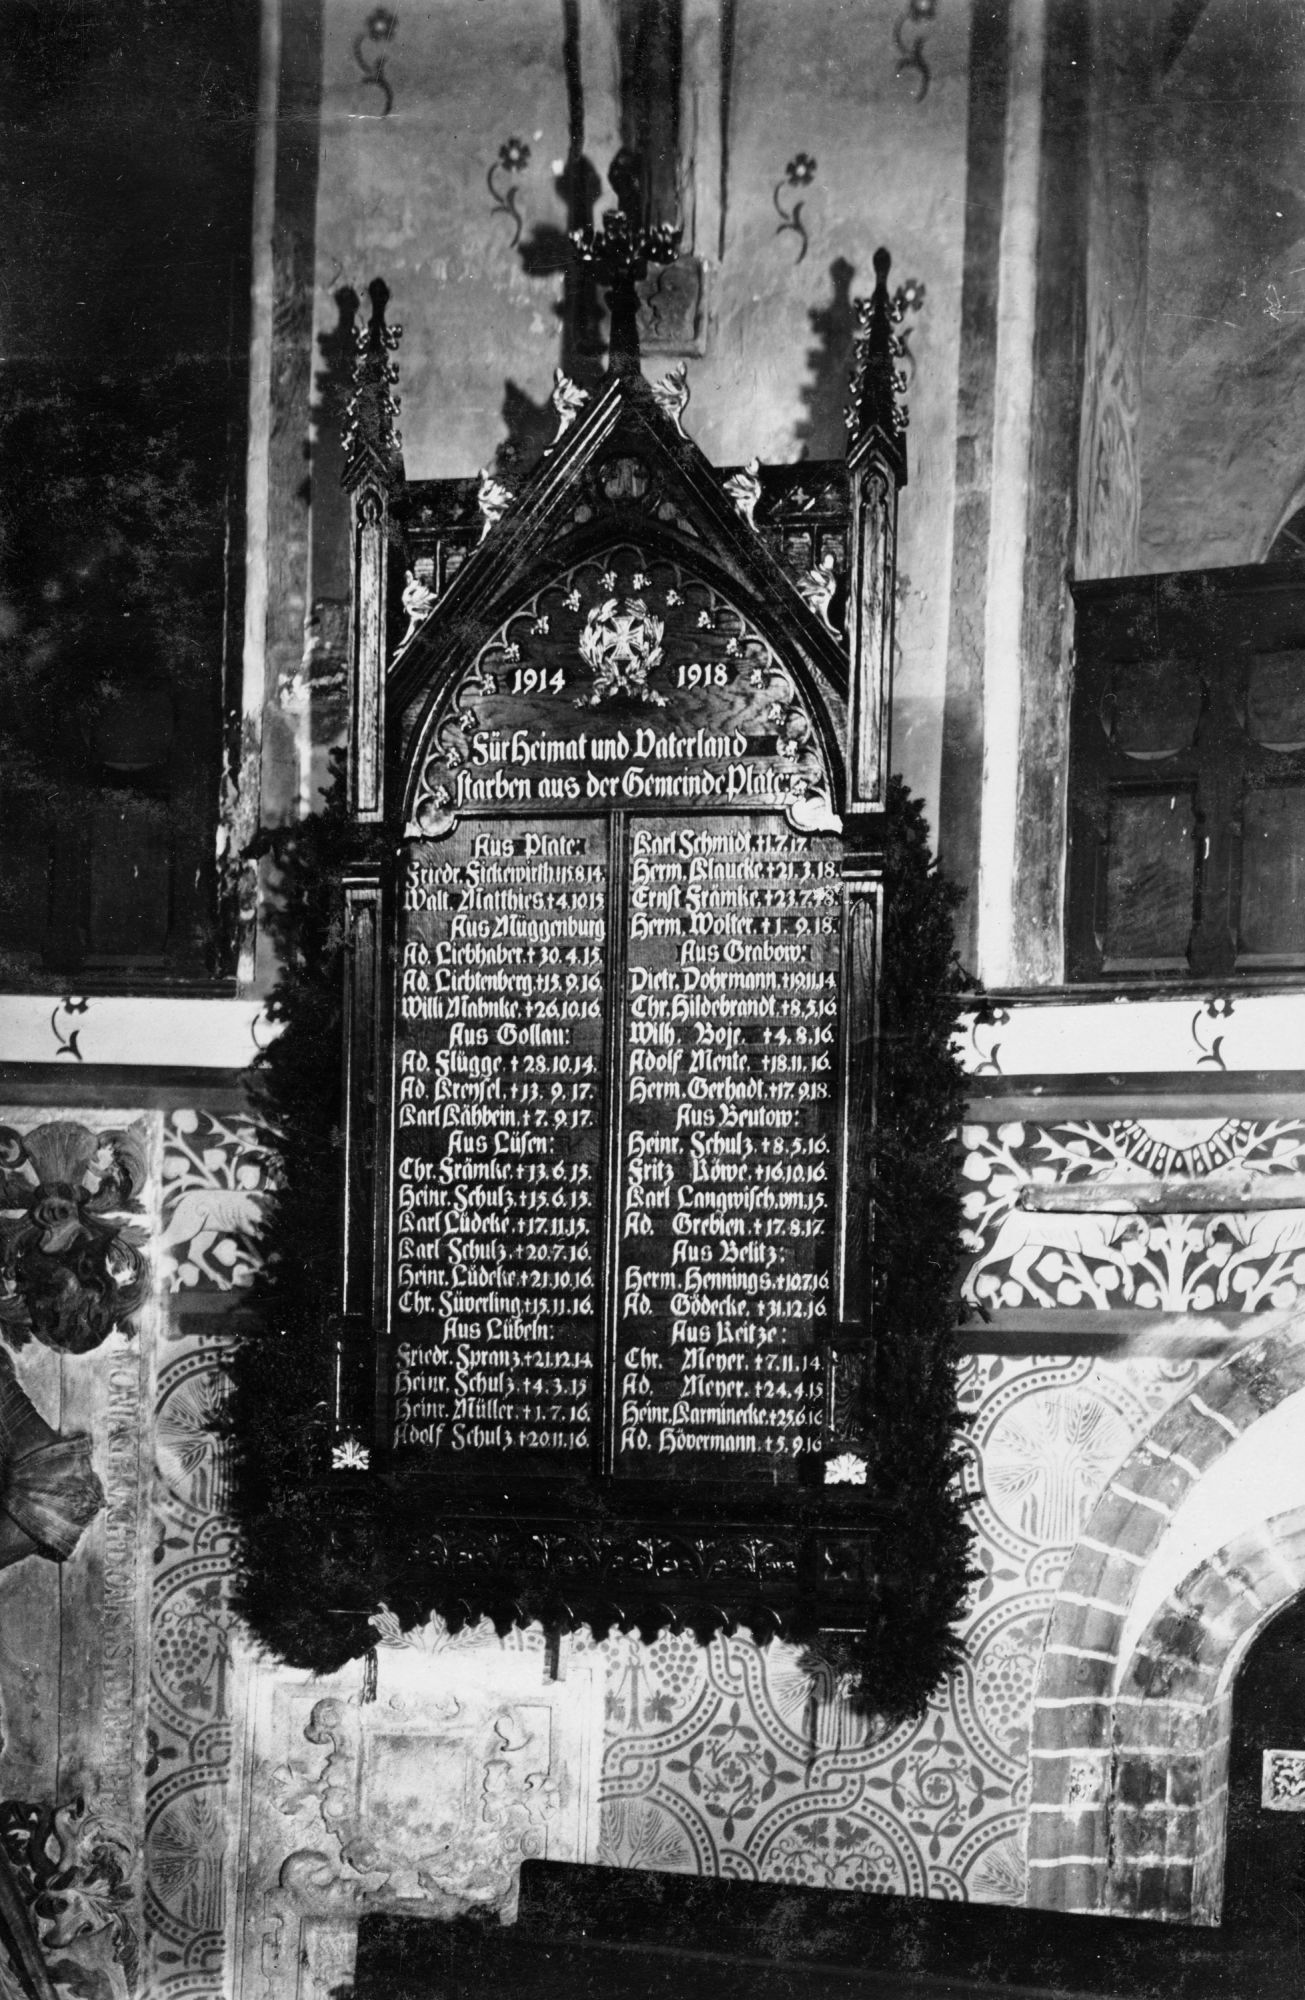 1914 1918
Für Heimat und Vaterland
starben aus der Gemeinde Plate:
Aus Plate:
Friedr. Fickewirth † 15.8.14.
Walt. Matthies. † 4.10.15
Aus Müggenburg
Ad. Liebhaber. † 30.4.15.
Ad. Lichtenberg. † 15.9.16
Willi Mahnke. † 26.10.16.
Aus Gollau:
Ad. Flügge. † 28.10.14.
Ad. Krensel. † 13.9.17.
Karl Käbbein. † 7.9.17.
Aus Lüsen:
Chr. Främke. † 13.6.15.
Heinr. Schulz. † 15.6.15.
Karl Lüdeke. † 17.11.15.
Karl Schulz. † 20.7.16.
Heinr. Lüdeke. † 21.10.16.
Chr. Süverling. † 15.11.16.
Aus Lübeln:
Friedr. Spranz. † 21.12.14.
Heinr. Schulz. † 4.3.15
Heinr. Müller. † 1.7.16.
Adolf Schulz. † 20.11.16.
Karl Schmidt. † 1.7.17.
Herm. Klaucke. † 21.3.18.
Ernst Främke. † 23.7.18.
Herm. Wolter. † 1.9.18.
Aus Grabow:
Dietr. Dohrmann. † 19.11.14
Chr. Hildebrandt. † 8.5.16.
Wilh. Boje. † 4.8.16.
Adolf Mente. † 18.11.16.
Herm. Gerhadt. † 17.9.18.
Aus Beutow:
Heinr. Schulz. † 8.5.16.
Fritz Röwe. † 16.10.16.
Karl Langwisch. vm. 15.
Ad. Grebien. † 17.8.17.
Aus Belitz:
Herm. Hennings. † 10.7.16
Ad. Gödecke. † 31.12.16.
Aus Reitze:
Chr. Meyer. † 7.11.14.
Ad. Meyer. † 24.4.15
Heinr. Karminecke. † 25.6.16
Ad. Hövermann. † 5.9.16